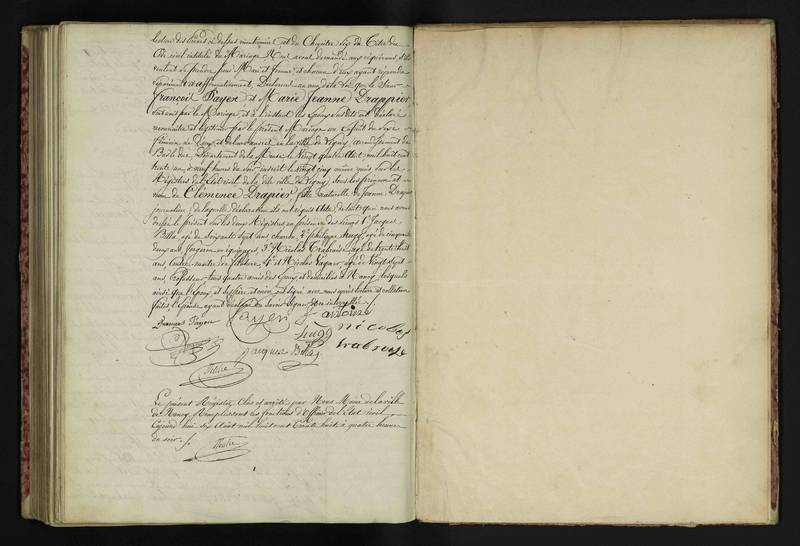 lecture des pièces ci dessus mentionnées et du Chapitre six du Titre du
Code civil intitulé du Mariage, Nous avons demandé aux requérans s'ils
veulent se prendre pour Mari et femme et chacun d'eux ayant répondu
séparément et affirmativement, Déclarons au nom de la Loi que le Sieur
François Payen et Marie Jeanne Drappier
sont unis par le Mariage, et à l'instant les Epoux susdits ont déclaré
reconnaître et légitimer par le présent Mariage un Enfant du sexe
féminin
Bar le duc, Département de la Meuse, le vingt quatre Août mil huit cent
trente un, à neuf heures du soir inscrit le vingt cinq même mois sur les
Registres de l'Etat civil de la dite ville de Ligny, sous les prénoms et
nom de Clémence Drapier, fille naturelle de Jeanne Drapier
journalière, de laquelle déclaration ils ont requis Acte, de tout quoi nous avons
dressé le présent sur les deux Registres en présence des sieurs 1° Jacques
Billa, agé de soixante sept ans, 2° Philippe Hugo, agé de cinquante
deux ans, forgeron en équipages, 3° Nicolas Trabraize, agé de trente huit
ans, Contre-maître de filature, 4° et Nicolas Vagner, agé de Vingt sept
ans, Professeur, tous quatre amis des Epoux, et domiciliés à Nancy, lesquels
ainsi que l'Epoux ont signé avec nous après lecture et collation
faites, l'Epouse ayant déclaré ne savoir signer
François Payen Payen
hugo nicolas
jacques Billa trabraize
Le présent Registre, Clos et arrêté par Nous Maire de la ville
de Nancy, Remplissant les fonctions d'Officier de l'Etat civil,
Cejourd'hui six Août mil huit cent trente huit à quatre heures
du soir.